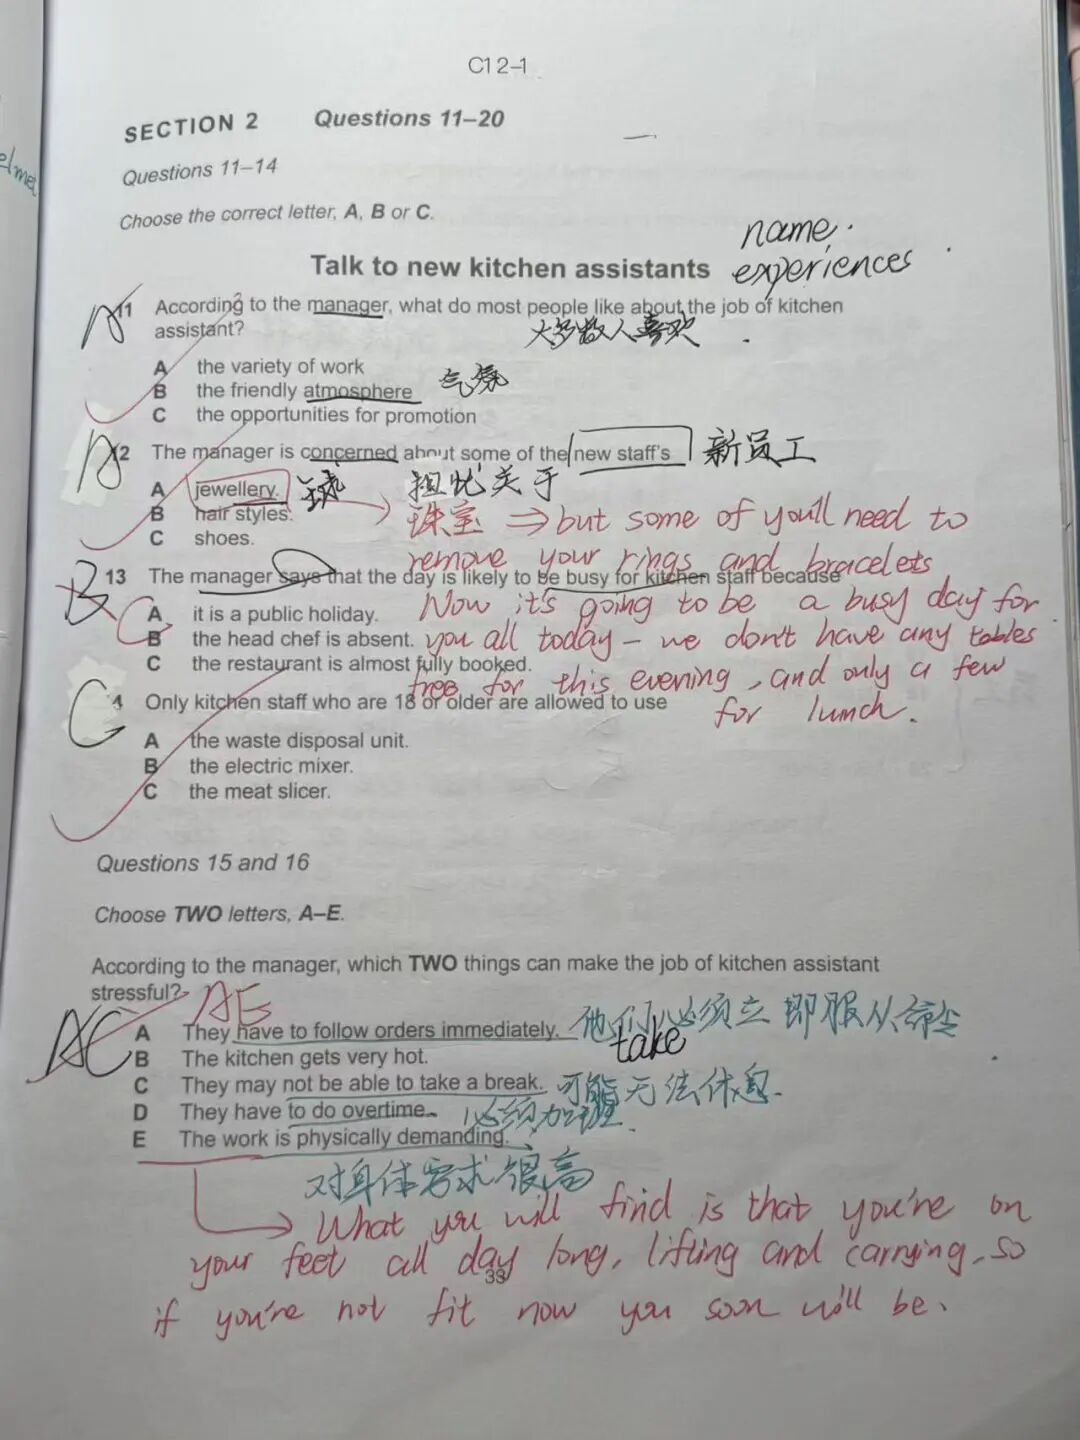 C12-1
SECTION 2 Questions 11–20
Questions 11–14
Choose the correct letter, A, B or C.
name.
Talk to new kitchen assistants experiences
A 11 According to the manager, what do most people like about the job of kitchen
assistant? 大多数人喜欢
A the variety of work
B the friendly atmosphere 气氛
C the opportunities for promotion
A 12 The manager is concerned about some of the new staff's 新员工
A jewellery. 担忧关于
B hair styles. 珠宝 ⇒ but some of you'll need to
C shoes. remove your rings and bracelets
B 13 The manager says that the day is likely to be busy for kitchen staff because
A it is a public holiday. Now it's going to be a busy day for
B the head chef is absent. you all today – we don't have any tables
C the restaurant is almost fully booked. free for this evening, and only a few
C 14 Only kitchen staff who are 18 or older are allowed to use for lunch.
A the waste disposal unit.
B the electric mixer.
C the meat slicer.
Questions 15 and 16
Choose TWO letters, A–E.
According to the manager, which TWO things can make the job of kitchen assistant
stressful? AE
AC
A They have to follow orders immediately. 他们必须立即服从命令
B The kitchen gets very hot. take
C They may not be able to take a break. 可能无法休息.
D They have to do overtime. 必须加班.
E The work is physically demanding.
对身体要求很高
What you will find is that you're on
your feet all day long, lifting and carrying, so
33
if you're not fit now you soon will be.